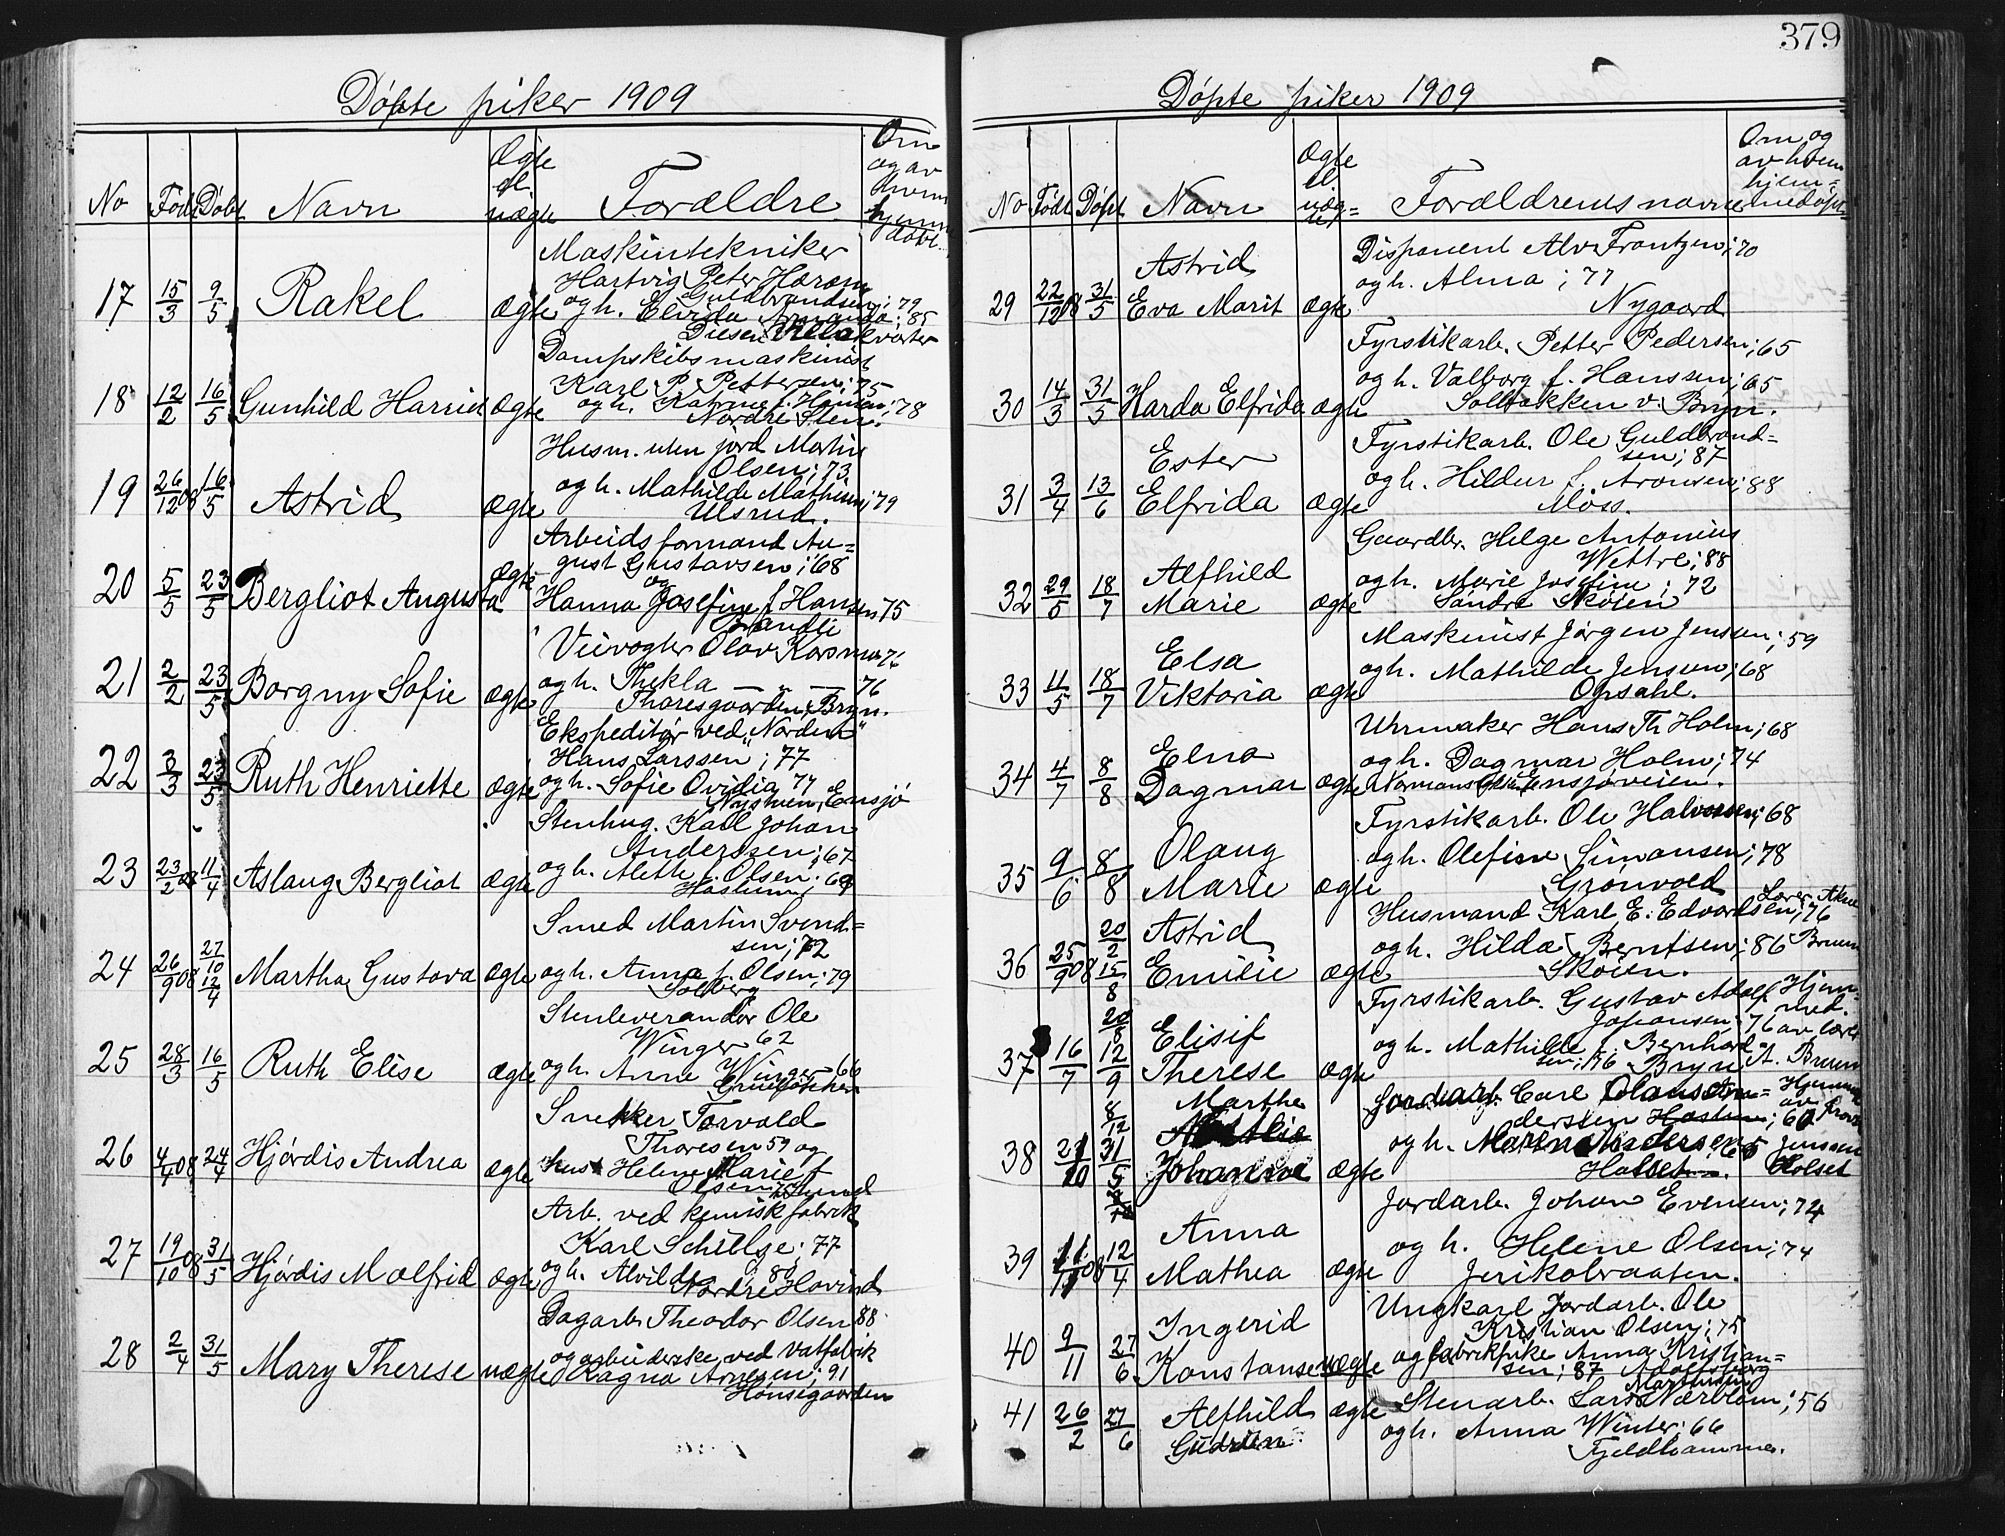 379
Døpte piker 1909
No Født Døbt Navn Ægte el. uægte Forældre Om og av hvem hjemmedøbt
17 15/3 9/5 Rakel ægte Maskintekniker
Hartvig Peter Harem
Guldbrandsen; 79
og h. Elvida Amanda; 85
18 12/2 16/5 Gunhild Harriet ægte Dampskibsmaskinist
Karl P. Pettersen; 75
og h. Katrine f. Hansen; 78
Nordre Sten.
19 26/12 08 16/5 Astrid ægte Husm. uten jord Martin
Olsen; 73
og h. Mathilde Mathisen; 79
Ulsrud.
20 5/5 23/5 Bergliot Augusta ægte Arbeidsformand Au=
gust Gustavsen; 68
og
Hanna Josefine f. Hansen 75
21 2/2 23/5 Borgny Sofie ægte Veivogter Olav Korsmo 76
og h. Thekla — „ — 76
Thoresgaarden, Bryn.
22 3/3 23/5 Ruth Henriette ægte Ekspeditør ved „Norden"
Hans Larssen; 77
og h. Sofie Ovidia 77
Nystuen, Ensjø
23 23/2 08 11/4 Aslaug Bergliot ægte Stenhug. Karl Johan
Anderssen; 67
og h. Alette f. Olsen; 69
Haslum
24 26/9 08 27/10 12/4 Martha Gustava ægte Smed Martin Svend=
sen; 72
og h. Anna f. Olsen; 79
Solberg
25 28/3 16/5 Ruth Elise ægte Stenleverandør Ole
Winger 62
og h. Anne Winger 66
26 4/4 08 24/4 Hjørdis Andrea ægte Snekker Torvald
Thoresen 59 og
hust Helene Marie f.
Olsen
27 19/10 08 31/5 Hjørdis Malfrid ægte Arb. ved kemisk fabrik
Karl Schillge; 77
og h. Alvilde 80
Nordre Hovind
28 2/4 31/5 Mary Therese uægte Dagarb. Theodor Olsen 88.
og arbeiderske ved Vatfabrik
Ragna Arnesen; 91
Hønsegaarden
Døpte piker 1909
No Født Døpt Navn Ægte el. uæg=te Forældrenes navne Om og av hvem hjem=medøpt
29 22/12 08 31/5 Astrid
Eva Marit ægte Disponent Alv Frantzen; 70
og h. Alma; 77
Nygaard
30 14/3 31/5 Harda Elfrida ægte Fyrstikarb. Petter Pedersen; 65
og h. Valborg f. Hanssen; 65
Solbakken v. Bryn.
31 3/4 13/6 Ester
Elfrida ægte Fyrstikarb. Ole Guldbrand=
sen; 87
og h. Hildur f. Aronsen; 88
Moss.
32 29/5 18/7 Alfhild
Marie ægte Gaardbr. Helge Antonius
Wettre; 88
og h. Marie Josefine; 72
Søndre Skøien
33 11/5 18/7 Elsa
Viktoria ægte Maskinist Jørgen Jenssen; 59
og h. Mathilde Jensen; 68
Opsahl.
34 4/7 8/8 Elna
Dagmar ægte Uhrmaker Hans Th Holm; 68
og h. Dagmar Holm; 74
Ensjøveien.
35 9/6 8/8 Olaug
Marie ægte Fyrstikarb. Ole Halvorsen; 68
og h. Olefine Simonsen; 78
Grønvold
36 25/9 08 20/2 15/8 Astrid
Emilie ægte Husmand Karl E. Edvardsen; 76
og h. Hilda Berntsen; 86
Skøien.
37 16/7 20/8 12/9 Elisif
Therese ægte Fyrstikarb. Gustav Adolf
Johansen; 76
og h. Mathilde f. Bernhard=
sen; 56 Bryn
Hjem=
med.
av lærer
A. Bruun
38 8/12 31/5 Marthe
Johanne ægte Jordarb. Carl An=
derssen; 60
og h. Maren
39 11/11 08 12/4 Anna
Mathea ægte Jordarb. Johan Evensen; 74
og h. Helene Olsen; 74
Jerikobraaten.
40 9/11 27/6 Ingerid
Konstanse uægte Ungkarl Jordarb. Ole
Kristian Olsen; 75
og fabrikpike Anna Kristian=
sen; 87
41 26/2 27/6 Alfhild
Gudrun ægte Stenarb. Lars Nærblom; 56
og h. Anna Winter; 66
Fjeldhammer.